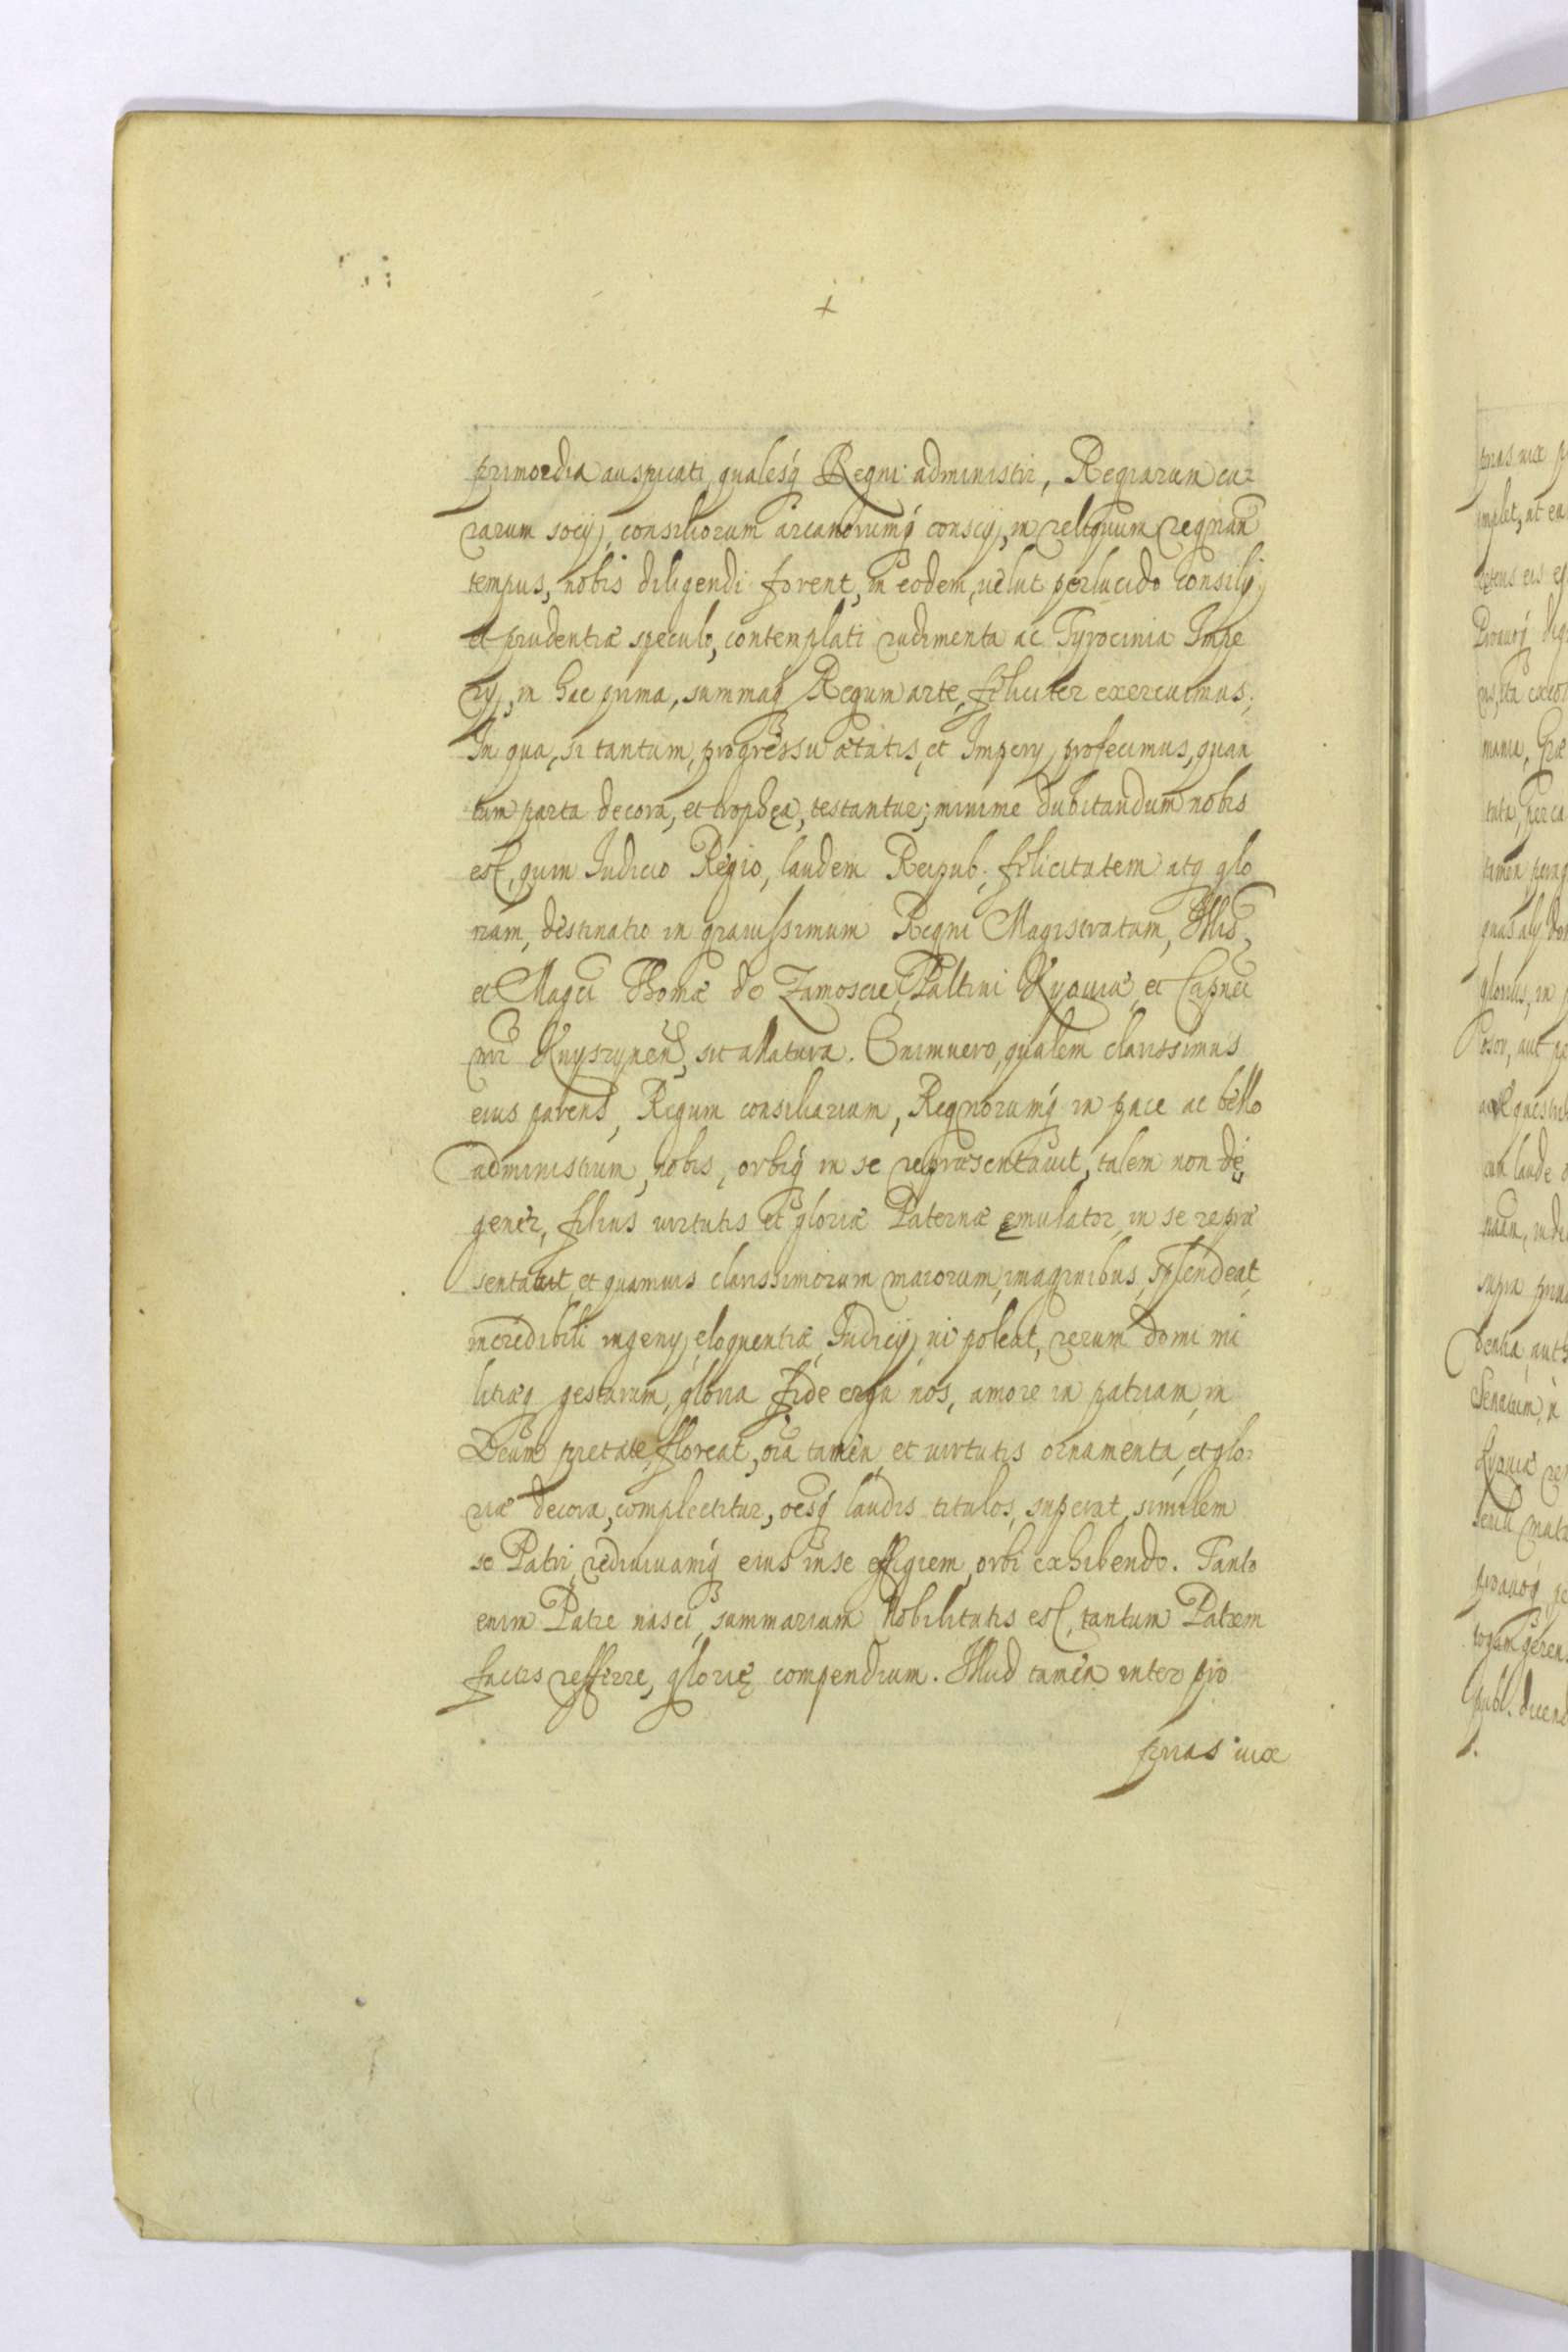 primordia auspicati, qualesq́ Regni administri, Regiarum cu-
rarum socij, consiliorum arcanorumq́ conscij, in reliquum regnan̄
tempus, nobis diligendi forent, in eodem, uelut perlucido Consilij
et prudentiæ speculo, contemplati rudimenta ac Tyrocinia Impe
rij, in hac prima, summaq́ Regum arte, fæliciter exercuimus.
In qua, si tantum, progressu ætatis, et Imperij profecimus, quan
tum parta decora, et trophęa, testantur; minime dubitandum nobis
est, quin Iudicio Regio, laudem Reipub. fælicitatem atq́ glo
riam, destinatio in grauissimum Regni Magistratum, Illis̄,
et Magci Thomæ de Zamoscie, Paltini Kyouiæ, et Capnei
nr̄i Knyszynen̄, sit allatura. Enimuero, qualem clarissimus
eius parens, Regum consiliarium, Regnorumq́ in pace ac bello
administrum, nobis, orbiq́ in se repræsentauit, talem non de
gener, filius uirtutis et gloriæ Paternæ ęmulator, in se repræ
sentauit, et quamuis clarissimorum maiorum, imaginibus, splendeat,
incredibili ingenij, eloquentiæ, Iudicij, ui poleat, rerum domi mi
litiæq́ gestarum, gloria fide erga nos, amore in patriam, in
Deum pietate, floreat, oīa tamen, et uirtutis ornamenta, et glo-
riæ decora, complectitur, oēsq́ laudis titulos, superat, similem
se Patri, rediuiuamq́ eius in se effigiem, orbi exhibendo. Tanto
enim Patre nasci, summarium Nobilitatis est, tantum Patrem
factis refferre, glorię compendium. Illud tamen inter pro
prias uix

prias uix